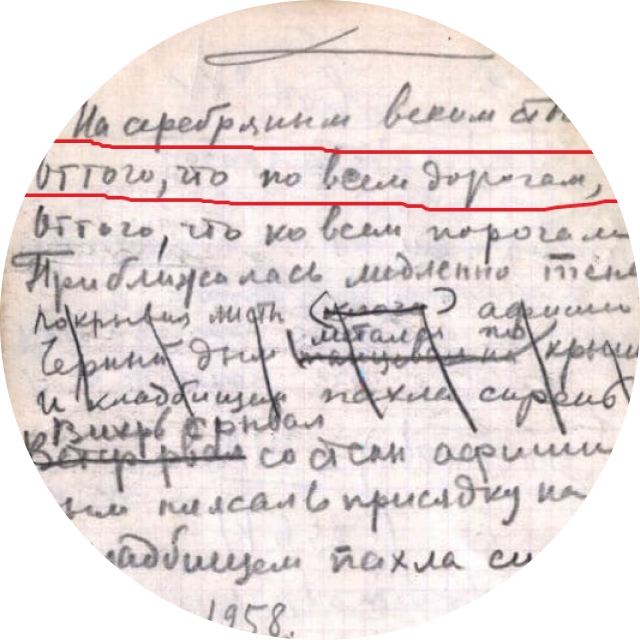 На серебряным веком
Оттого, что по всем дорогам,
Оттого, что ко всем порогам
Приближалась медленно тень
покрывая афиши
металл по
Черный дым крыш
и кладбищем пахла сирень
Вихрь срывал
Ветер рвал со стен афиши
дым плясал вприсядку на
кладбищем пахла си
1958.